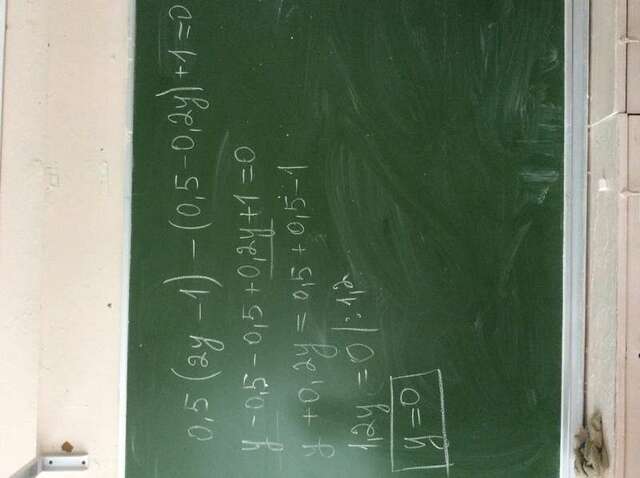 0,5(2y-1)-(0,5-0,2y)+1=0
y-0,5-0,5+0,2y+1=0
y+0,2y=0,5+0,5-1
1,2y=0|:1,2
y=0